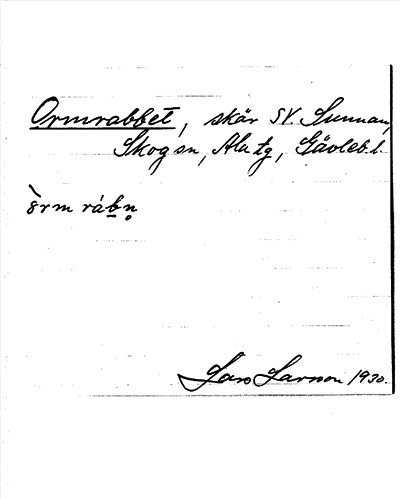 Ormrabbet, skär SV. Sunnan,
Skog sn, Ala tg, Gävleb. l.
òrm ráb̲n̥
Lars Larsson 1930.